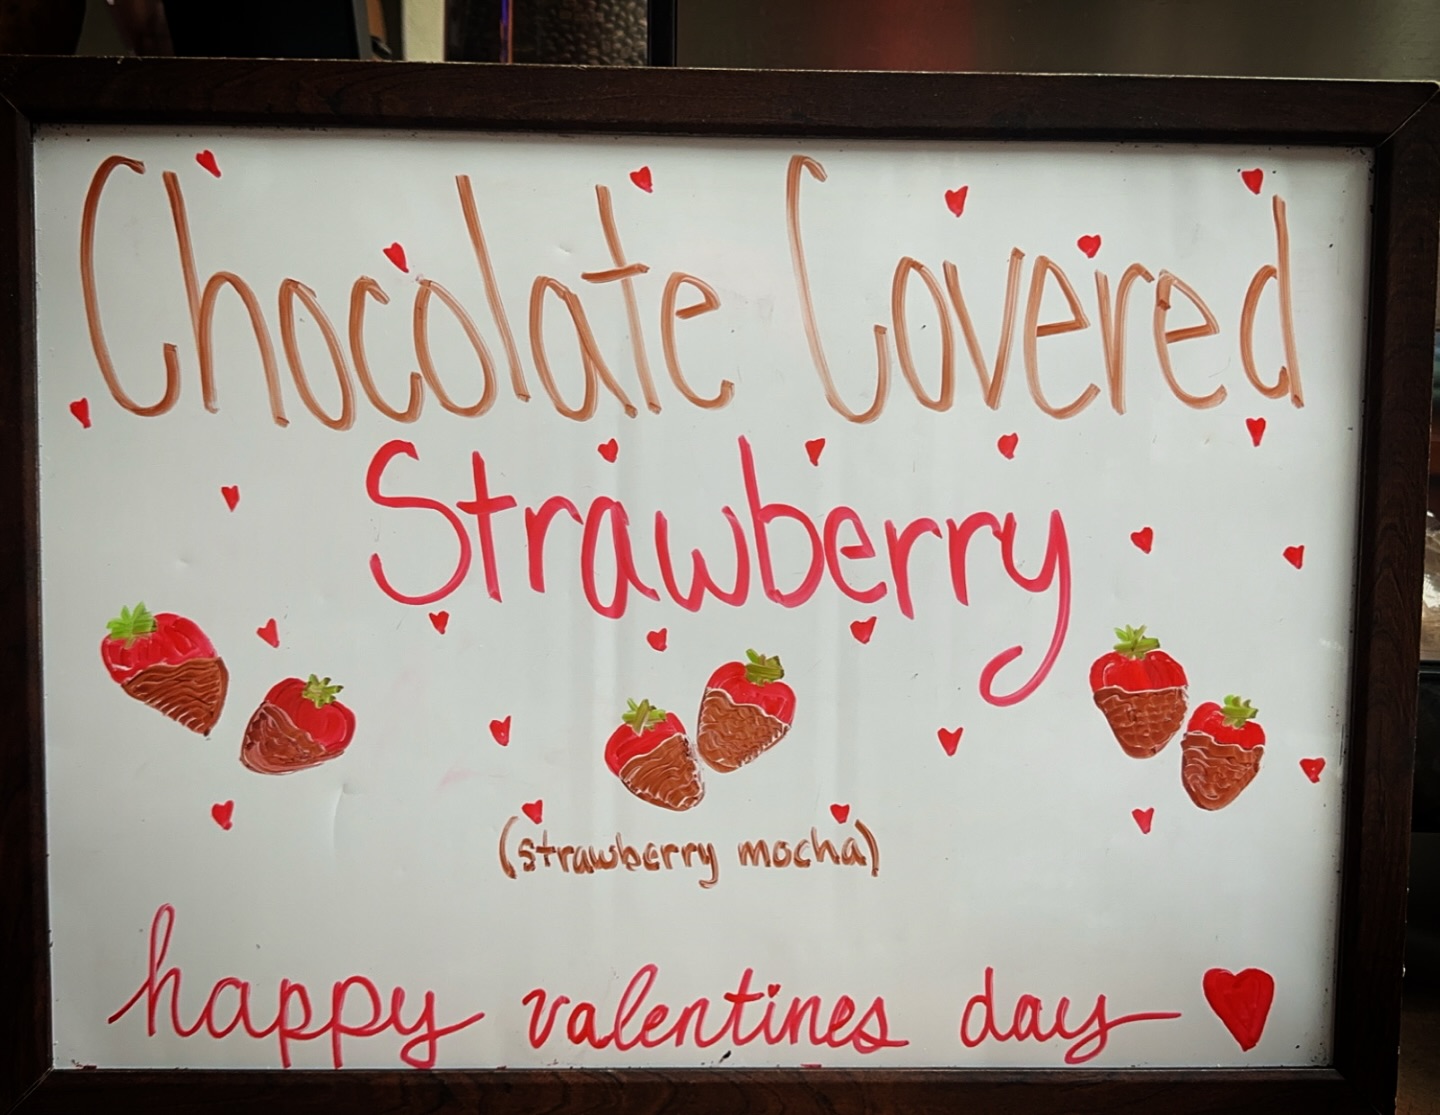 Chocolate Covered
Strawberry
(strawberry mocha)
happy valentines day